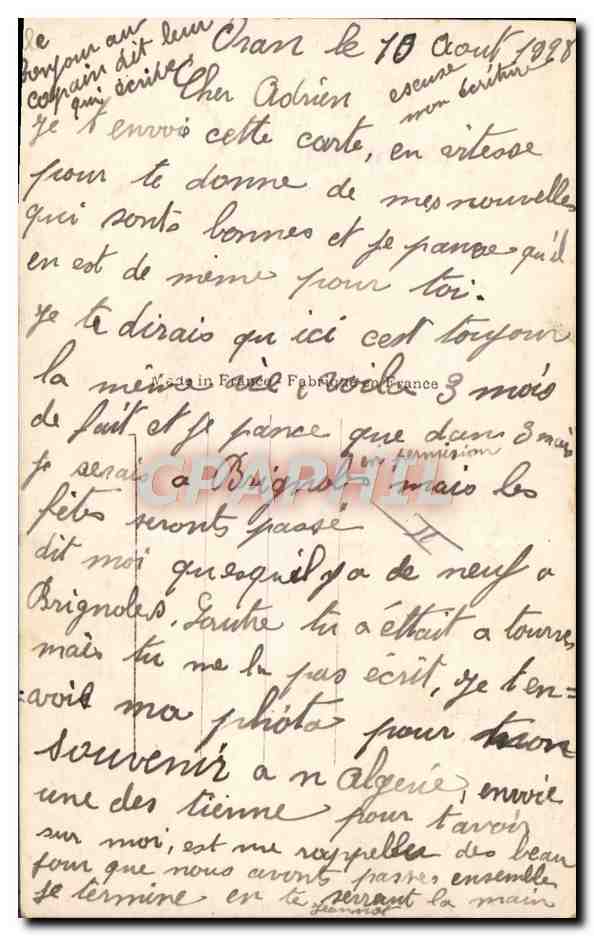 le
bonjour au
copain dit leur
qui écribe
Oran le 10 Aout 1928
Cher Adrien
escuse
mon écriture
Je t'envoi cette carte, en vitesse
pour te donne de mes nouvelles
qui sonts bonnes et je pance qu'il
en est de même pour toi.
Je te dirais qu ici cest toujour
la même vie, voila 3 mois
Made in France - Fabriqué en France
de fait et je pance que dans 3 mois
en permision
je serais a Brignoles mais les
CPAPHIL
fêtes seronts passé
dit moi quesqu'il y a de neuf a
Brignoles. Lautre tu a éttait a tourves
mais tu me la pas écrit, Je t'en=
=voie ma phota pour mon
souvenir a n Algerie, envoie
une des tienne pour t'avoir
sur moi, est me rappelles des beau
jour que nous avonts passes ensembles
je termine en te serrant la main
Jeannot